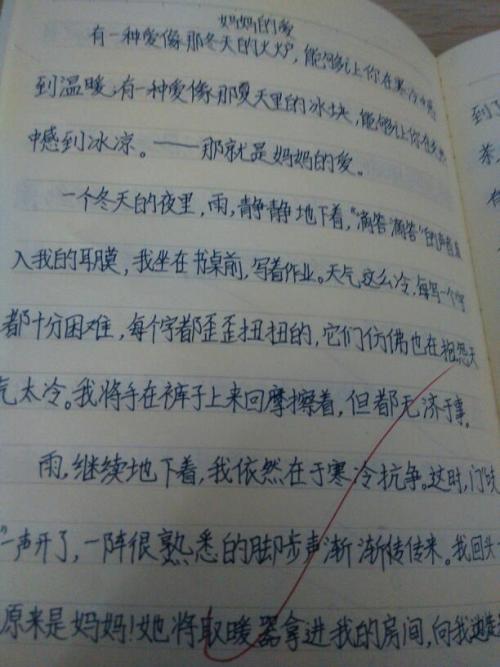 妈妈的爱
有一种爱像那冬天的火炉，能够让你在寒冷中感
到温暖；有一种爱像那夏天里的冰块，能够让你在炎热
中感到冰凉。——那就是妈妈的爱。
一个冬天的夜里，雨，静静地下着，“滴答滴答”的声音
入我的耳膜，我坐在书桌前，写着作业。天气这么冷，每写一个字
都十分困难，每个字都歪歪扭扭的，它们仿佛也在抱怨天
气太冷。我将手在裤子上来回摩擦着，但都无济于事。
雨，继续地下着，我依然在于寒冷抗争。这时，门
”一声开了，一阵很熟悉的脚步声渐渐传传来。我回头
原来是妈妈！她将取暖器拿进我的房间，向我
到了
茶